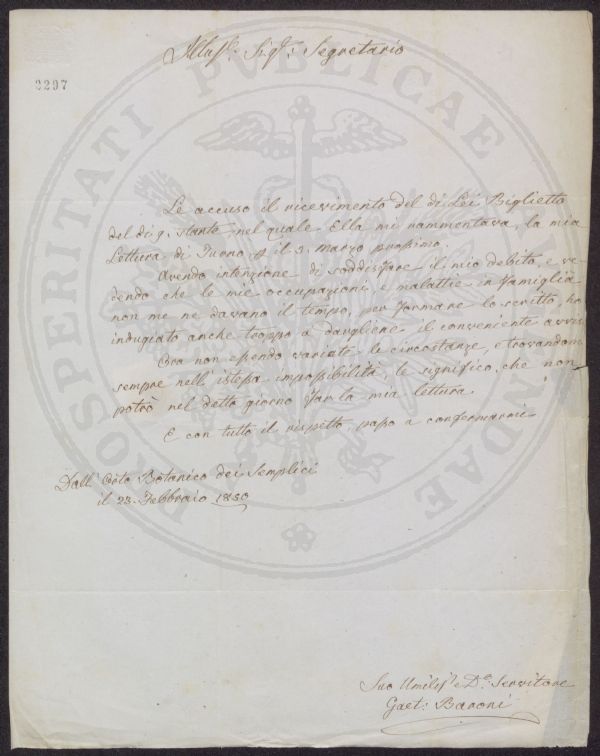 Illus.: Sig.: Segretario
2297
PROSPERITATI PVBLICAE AVGENDAE
Le accuso il ricevimento del di Lei Biglietto
del di 9. stante nel quale Ella mi rammentava, la mia
Lettura di Turno il 3. Marzo prossimo.
Avendo intenzione di soddisfare il mio debito, e ve
dendo che le mie occupazioni e malattie in famiglia
non me ne davano il tempo, per formare lo scritto, ho
indugiato anche troppo a dargliene il conveniente avviso
Ora non essendo variate le circostanze, e trovandomi
sempre nell'istessa impossibilità, le significo, che non
potrò nel detto giorno far la mia lettura
E con tutto il rispetto, passo a confermarmi
Dall'Orto Botanico dei Semplici
il 23. Febbraio 1830
Suo Umilis.e D.o Servitore
Gaet: Baroni